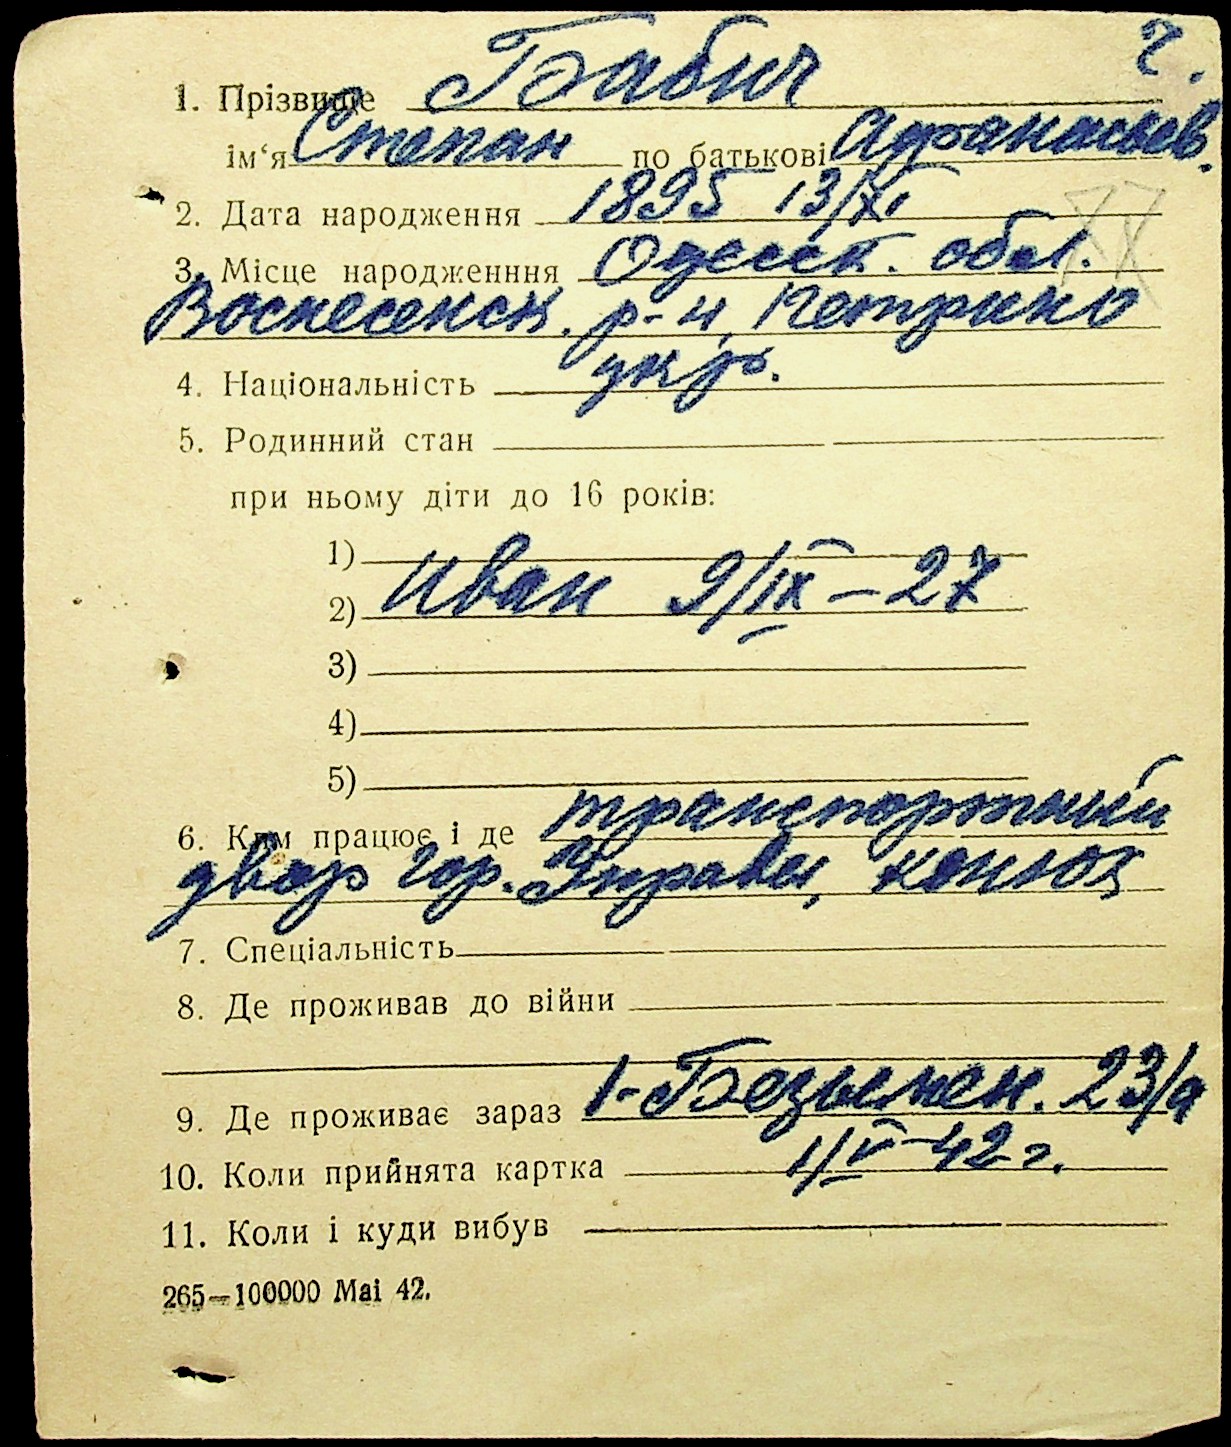 г.
1. Прізвище Бабич
ім‘я Степан по батькові Афанасьев.
2. Дата народження 1895 13/XI
3. Місце народженння Одесск. обл.
Воскесенск. р-н, Петрино
4. Національність укр.
5. Родинний стан
при ньому діти до 16 років:
1)
2) Иван 9/IX – 27
3)
4)
5)
6. Ким працює і де транспортный
двор Гор. Управы, конюх
7. Спеціальність
8. Де проживав до війни
9. Де проживає зараз 1-Безымен. 23/а
10. Коли прийнята картка 1/V-42 г.
11. Коли і куди вибув
265—100000 Mai 42.